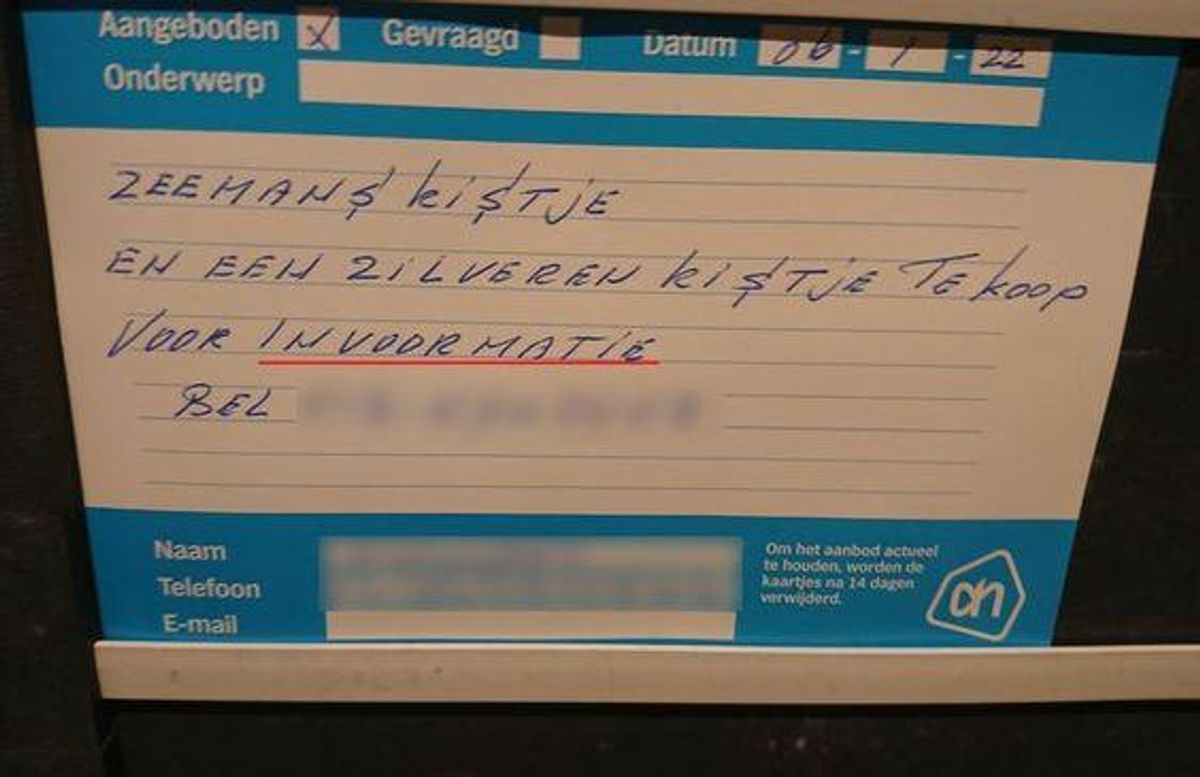 Aangeboden X Gevraagd Datum 06 - 1 - 22
Onderwerp
ZEEMANS KiSTjE
EN EEN ZiLVEREN KiSTjE TE KOOP
VOOR INVOORMATIE
BEL
Naam
Telefoon
E-mail
Om het aanbod actueel
te houden, worden de
kaartjes na 14 dagen
verwijderd.
ah